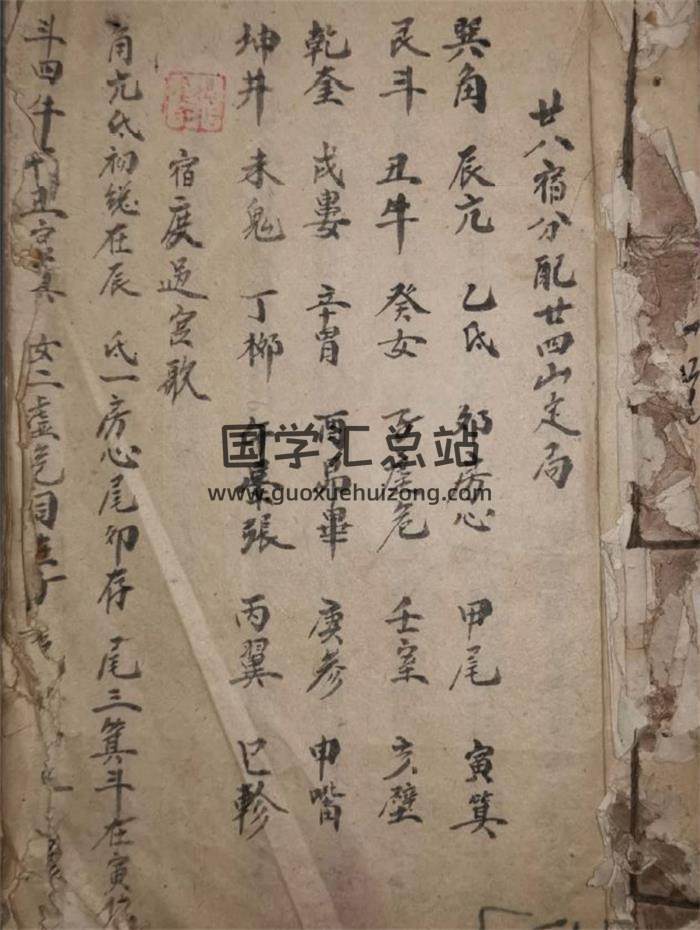 廿八宿分配廿四山定局
巽角 辰亢 乙氐 卯房心 甲尾 寅箕
艮斗 丑牛 癸女 子虚危 壬室 亥壁
乾奎 戌婁 辛胃 酉昴畢 庚參 申嘴
坤井 未鬼 丁柳 午星張 丙翼 巳軫
宿度过宫歌
角亢氐初總在辰 氐一房心尾卯存 尾三箕斗在寅
斗四牛 丑 女二虚危同在子
国学汇总站
www.guoxuehuizong.com